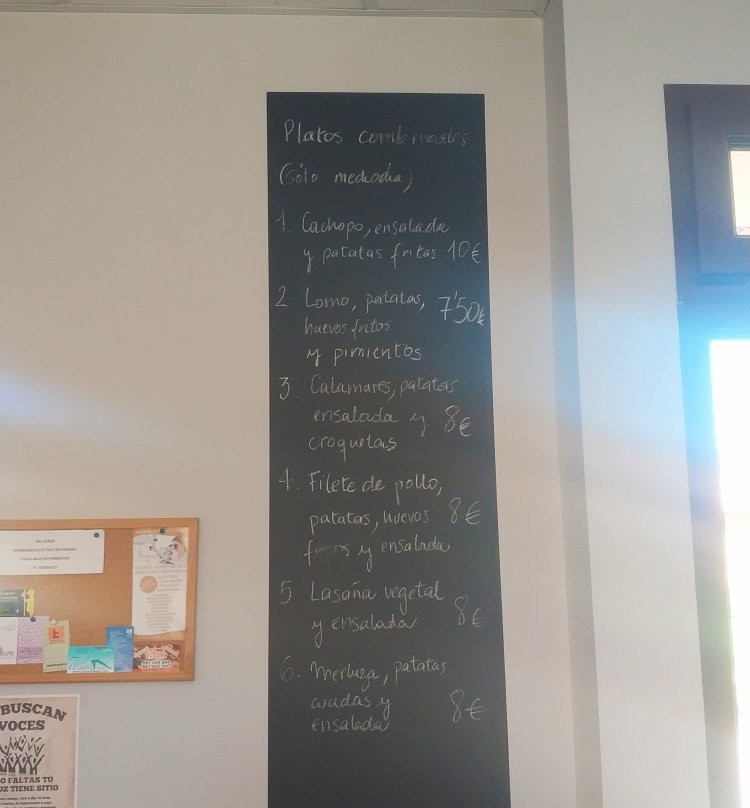 Platos combinados
(sólo mediodía)
1. Cachopo, ensalada
y patatas fritas 10€
2. Lomo, patatas, 7'50€
huevos fritos
y pimientos
3. Calamares, patatas
ensalada y 8€
croquetas
4. Filete de pollo,
patatas, huevos 8€
y ensalada
5 Lasaña vegetal
y ensalada 8€
6. Merluza, patatas
cocidas y 8€
ensalada
SE VENDE
GANADOR DE PICO DE PARRAL
PARA MAS INFORMACION
BUSCAN
VOCES
O FALTAS TU
OZ TIENE SITIO